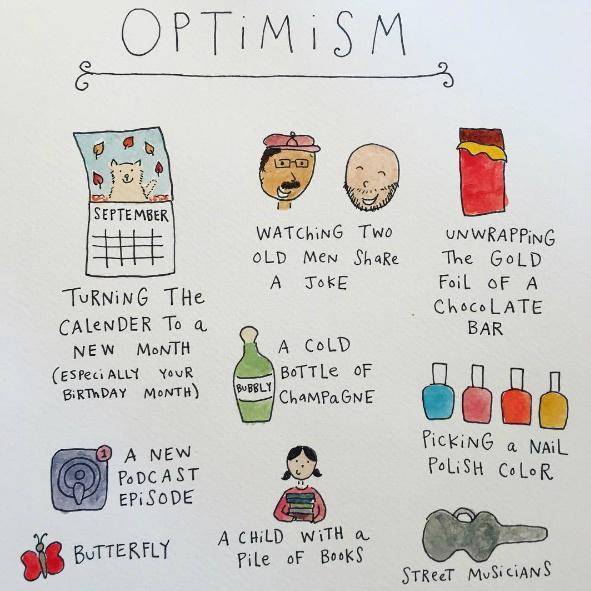 OPTiMiSM
SEPTEMBER
TURNiNG THE
CALENDER To a
NEW MoNTH
(ESPECiALLY YOUR
BiRThDAY MONTH)
WATChiNG TWO
OLD MEN ShaRe
A JOKE
UNWRAPPiNG
The GoLD
FoiL OF A
ChocoLATE
BAR
BUBBLY
A CoLD
BoTTLe OF
ChaMPaGNE
PiCKiNG a NaiL
PoLiSH CoLoR
1
A NEW
PoDCAST
EPiSODE
A CHiLD WiTH a
PiLe oF BooKS
BUTTERFLY
STReeT MuSiCiANS